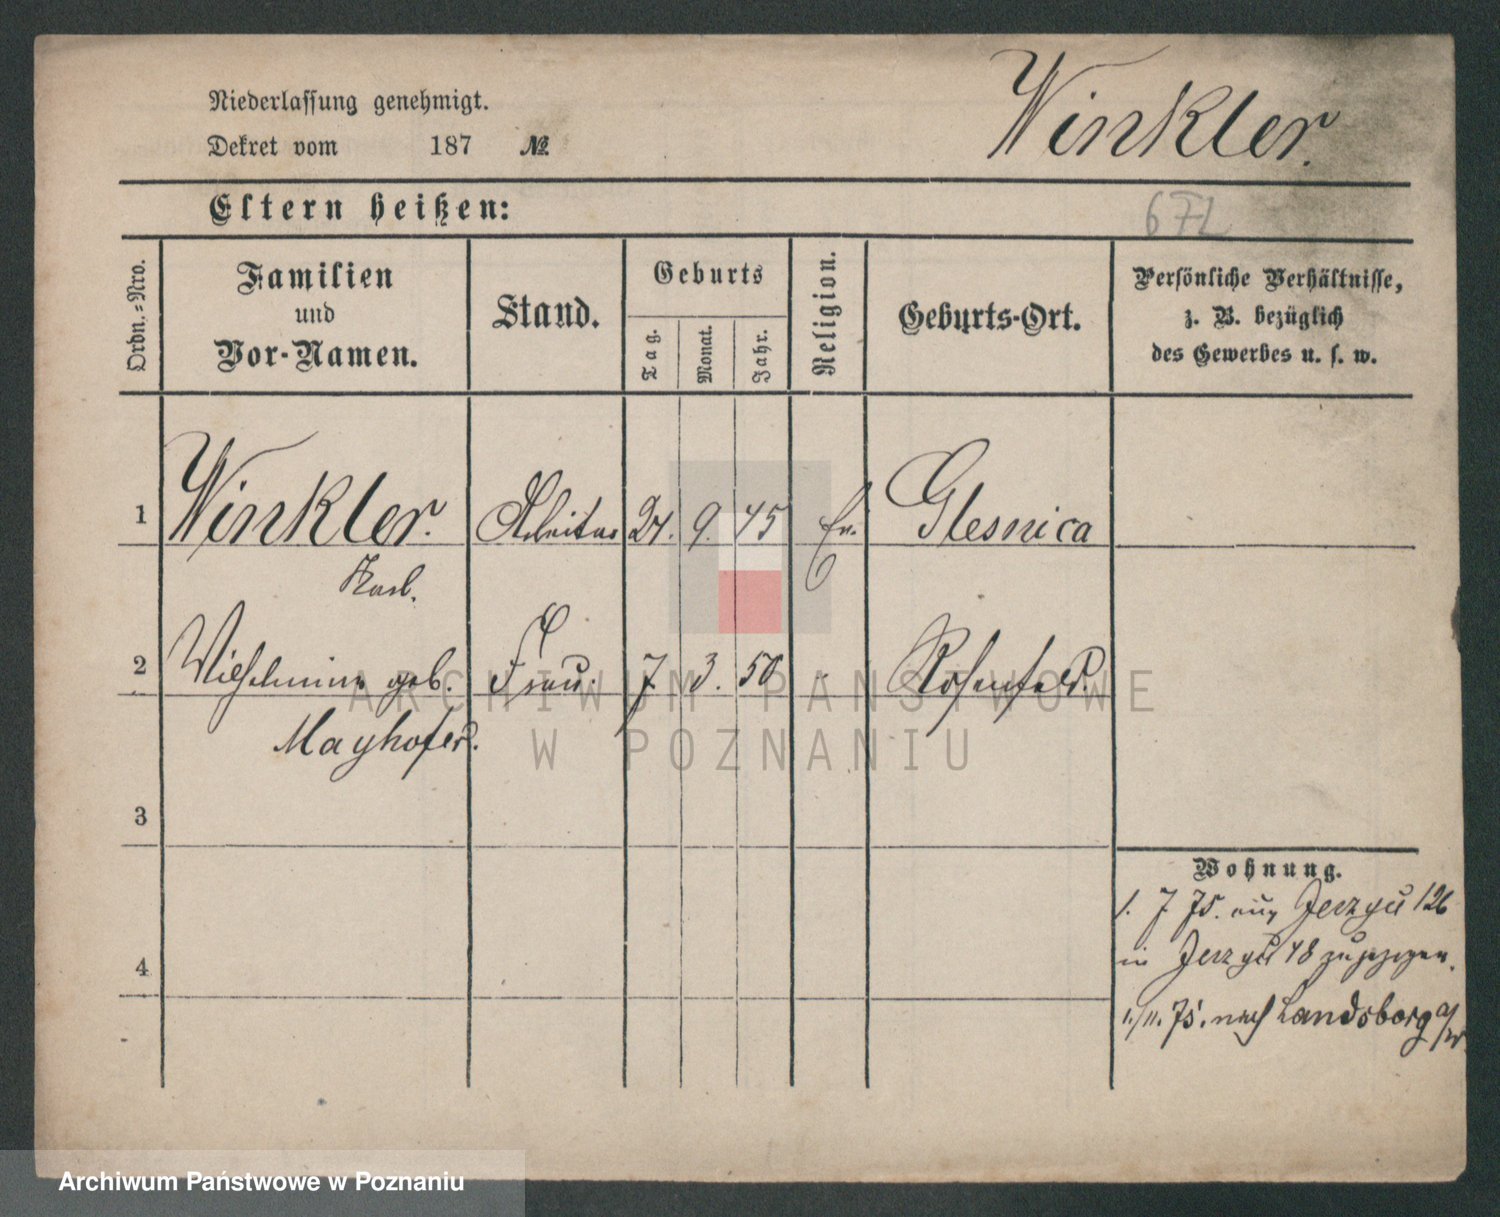 Winkler.
Niederlassung genehmigt.
Dekret vom 187 №
Eltern heißen:
67
Ordn.-Nro.
Familien
und
Vor-Namen.
Stand.
Geburts
Tag.
Monat.
Jahr.
Religion.
Geburts-Ort.
Persönliche Verhältnisse,
z. B. bezüglich
des Gewerbes u. s. w.
1 Winkler. Arbeiter 24. 9. 45 Ev. Glesnica
Karl.
2 Wilhelmine geb. Frau. 7. 3. 50 " Rosenfeld.
Mayhofer.
3
4
Wohnung.
1. 7 75. aus Jerzyce 126
in Jerzyce 48 zugezogen.
1./11. 75. nach Landsberg a/W.
ARCHIWUM PAŃSTWOWE
W POZNANIU
Archiwum Państwowe w Poznaniu